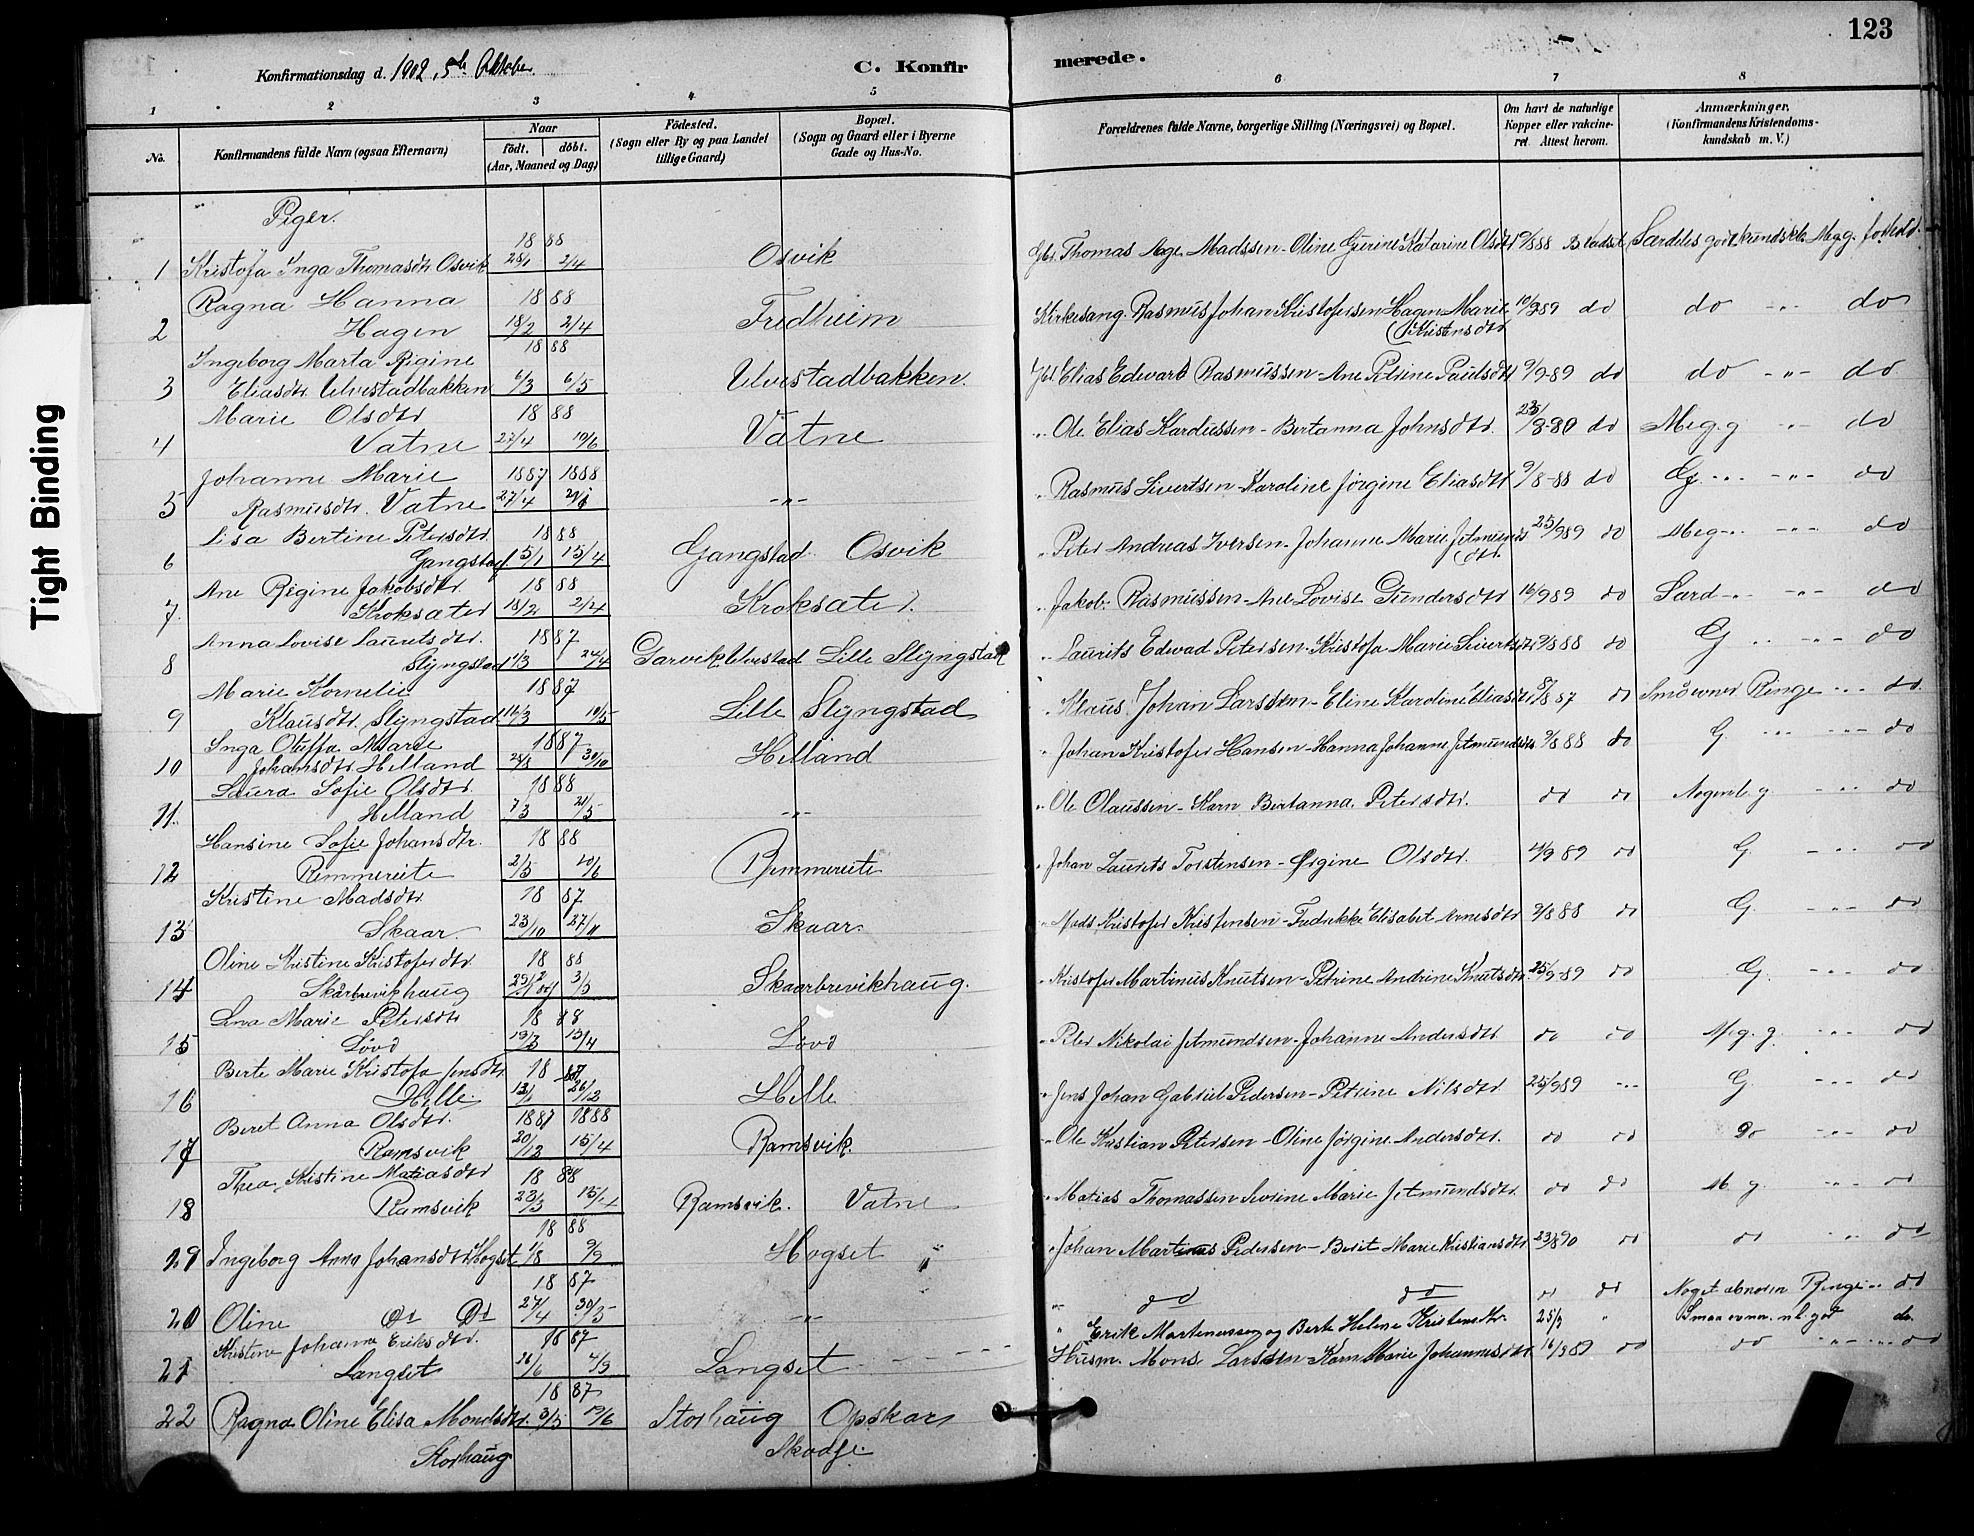 123
Konfirmationsdag d. 1902, 5te Oktober.
C. Konfirmerede.
1 2 3 4 5 6 7 8
No.
Konfirmandens fulde Navn (ogsaa Efternavn)
Naar
født. døbt.
(Aar, Maaned og Dag)
Födested.
(Sogn eller By og paa Landet
tillige Gaard)
Bopæl.
(Sogn og Gaard eller i Byerne
Gade og Hus-No.
Forældrenes fulde Navne, borgerlige Stilling (Næringsvei) og Bopæl.
Om havt de naturlige
Kopper eller vakcine-
ret. Attest herom.
Anmærkninger.
(Konfirmandens Kristendoms-
kundskab m. V.)
Tight Binding
Piger.
1 Kristofa Inga Thomasdtr Osvik 1888 28/1 2/4 Osvik Gbr. Thomas Aage Madssen - Oline Gurine Katarine Olsdtr 9/8 88 Særdeles god kundskb. Meg g. forhold.
2 Ragna Hanna Hagen 1888 18/2 2/4 Fredheim Kirkesang. Rasmus Johan Kristofersen Hagen - Marie Kristensdtr 10/9 89 do do - " - do
3 Ingeborg Marta Regine Eliasdtr. Ulvestadbakken 1888 6/3 6/5 Ulvestadbakken. Elias Edvard Rasmussen - Ane Petrine Paulsdtr 9/9-89 do do - " - do
4 Marie Olsdtr Vatne 1888 27/4 10/6 Vatne " Ole Elias Kardussen - Bertanna Johnsdtr. do Meg. g - " - do
5 Johanne Marie Rasmusdtr. Vatne 1887 1888 27/4 - " - " Rasmus Sivertsen - Karoline Jørgine Eliasdtr 9/8-88 do G. - " - do
6 Lisa Bertine Petersdtr Gangstad 1888 15/4 Gangstad Osvik " Peter Andreas Iversen - Johanne Marie Jetmundsdtr. 25/9 89 do Meg - " - do
7 Ane Regine Jakobsdtr. Kroksater 1888 18/2 2/4 Kroksater. " Jakob Rasmussen - Ane Lovise Gundersdtr 16/9 89 do Særd - " - do
8 Anna Lovise Lauritsdtr. Slyngstad 1887 24/4 Garvik Ulvestad Lille Slyngstad " Laurits Edvad Petersen - Kristofa Marie Sivertsdtr 9/8 88 do G - " - do
9 Marie Kornelie Klausdtr. Slyngstad 1887 10/5 Lille Slyngstad " Klaus Johan Larssen - Eline Karoline Eliasdtr 8/8 87 do Små evner Ringe - " - do.
10 Inga Oluffa Marie Johansdtr. Helland 1887 24/8 30/10 Helland " Johan Kristofer Hansen - Hanna Johanne Jetmundsdtr 9/8 88 do G - " - do
11. Laura Sofie Olsdtr. Helland 1888 7/3 21/5 - " - " Ole Olaussen - Karn Bertanna Petersdtr. do do Nogenl. g - " - do
12 Hansine Sofie Johansdtr. Remmereite 1888 2/5 10/6 Remmereite " Johan Laurits Torstensen - Ørgine Olsdtr. 4/9 89 do G. - " - do
13 Kristine Madsdtr. Skaar. 1887 23/10 27/11 Skaar. " Mads Kristofer Kristensen - Fredrikke Elisabet Arnesdtr 9/8 88 do G. - " - do
14 Oline Kristine Kristoferdtr. Skårbrevikhaug 1888 3/5 Skaarbrevikhaug. " Kristofer Martinus Knutsen - Petrine Andrine Knutsdtr 25/9-89 do G. - " - do
15 Lina Marie Petersdtr Løvd 1888 19/3 15/4 Løvd " Peter Nikolai Jetmundsen - Johanne Andersdtr. do do Meg. g. - " - do
16 Berte Marie Kristofa Jensdtr Helle. 18 26/12 Helle " Jens Johan Gabriel Pedersen - Petrine Nilsdtr. 25/9 89 - " - G - " - do
17 Beret Anna Olsdtr. Ramsvik 1887 1888 20/12 15/4 Ramsvik. " Ole Kristian Petersen - Oline Jørgine Andersdtr. do do do - " - do
18 Thea Kristine Matiasdtr Ramsvik 1888 23/3 15/4 Ramsvik. Vatne " Matias Thomassen Severine Marie Jetmundsdtr. do do M. g. - " - do
19 Ingeborg Anna Johansdtr Hogset 1888 1/8 9/9 Hogset " Johan Martinus Pedersen - Berit Marie Kristiansdtr 23/8 90 do do - " - do
20 Oline do do 1887 27/4 30/5 - " - " do do do do Noget abnorm Ringe - " do
21 Kristine Johanna Eriksdtr. Langset 1887 26/6 4/9 Langset " Erik Martinussen og Berte Helene Kristensdtr. 25/9 " Smaa evner. nl. god do.
22 Ragna Oline Elisa Monsdtr. Storhaug 1887 3/5 19/6 Storhaug Opskar Skodje. Husm. Mons Larssen - Karn Marie Johannesdtr 16/9 89 do do - " - do